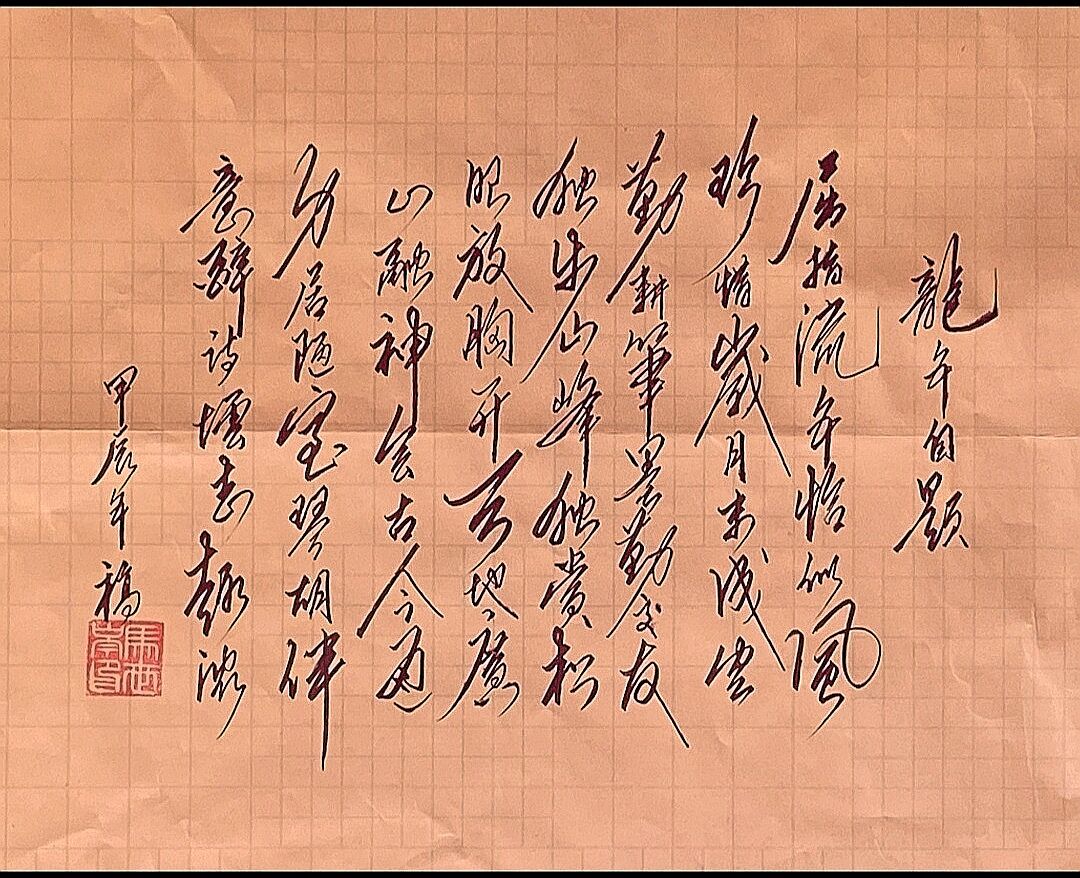 龍年自題
屈指流年恰似風
珍惜歲月未成空
勤耕筆墨勤交友
独步山峰独賞松
眼放胸开天地廣
心融神会古今通
身居陋室琴胡伴
意醉诗壇志趣浓
甲辰年稿